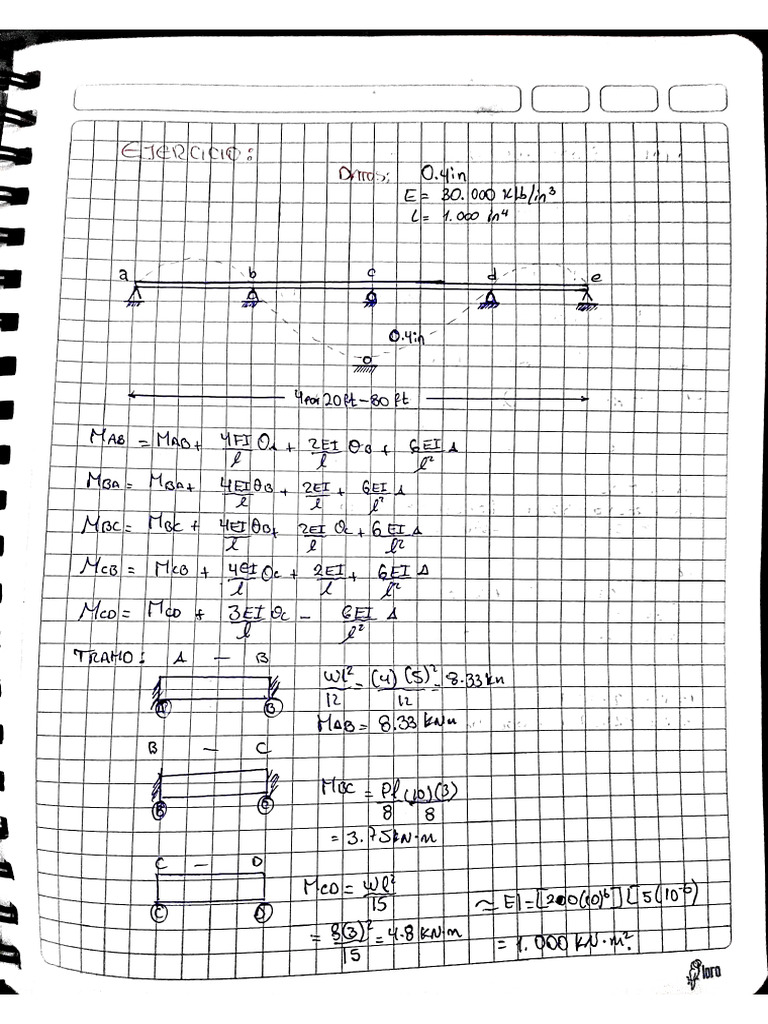 EJERCICIO:
DATOS: 0.4in
E = 30.000 Klb/in³
I = 1.000 in⁴
a b c d e
0.4in
4 por 20 ft - 80 ft
MAB = MAB + 4EI/l θA + 2EI/l θB + 6EI/l² Δ
MBA = MBA + 4EI/l θB + 2EI/l + 6EI/l² Δ
MBC = MBC + 4EI/l θB + 2EI/l θC + 6EI/l² Δ
MCB = MCB + 4EI/l θC + 2EI/l + 6EI/l² Δ
MCD = MCD + 3EI/l θC - 6EI/l² Δ
TRAMO: A - B
Wl²/12 = (4)(5)²/12 = 8.33kn
A B
MAB = 8.33 kNm
B - C
MBC = Pl/8 (10)(3)/8
B C
= 3.75kN·m
C - D
MCD = Wl²/15
≈ EI = [200(10)⁶] [5(10⁻⁶)
C D
= 8(3)²/15 = 4.8 KN·m
= 1.000 KN·m²
loro